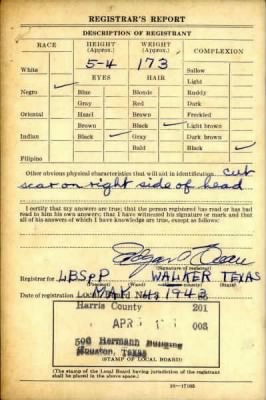 REGISTRAR'S REPORT
DESCRIPTION OF REGISTRANT
RACE HEIGHT (Approx.) WEIGHT (Approx.) COMPLEXION
White 5-4 173 Sallow
EYES HAIR Light
Negro ✓ Blue Blonde Ruddy
Gray Red Dark
Oriental Hazel Black Freckled
Brown Brown Light brown ✓
Indian Black ✓ Gray Dark brown
Bald Black
Filipino
Other obvious physical characteristics that will aid in identification cut
scar on right side of head
I certify that my answers are true; that the person registered has read or has had
read to him his own answers; that I have witnessed his signature or mark and that
all of his answers of which I have knowledge are true, except as follows:
(Signature of registrar)
Registrar for LBS WALKER TEXAS
Date of registration MAY 1943
Harris County 201
APR 003
Houston, Texas
(STAMP OF LOCAL BOARD)
(The stamp of the Local Board having jurisdiction of the registrant
shall be placed in the above space.)